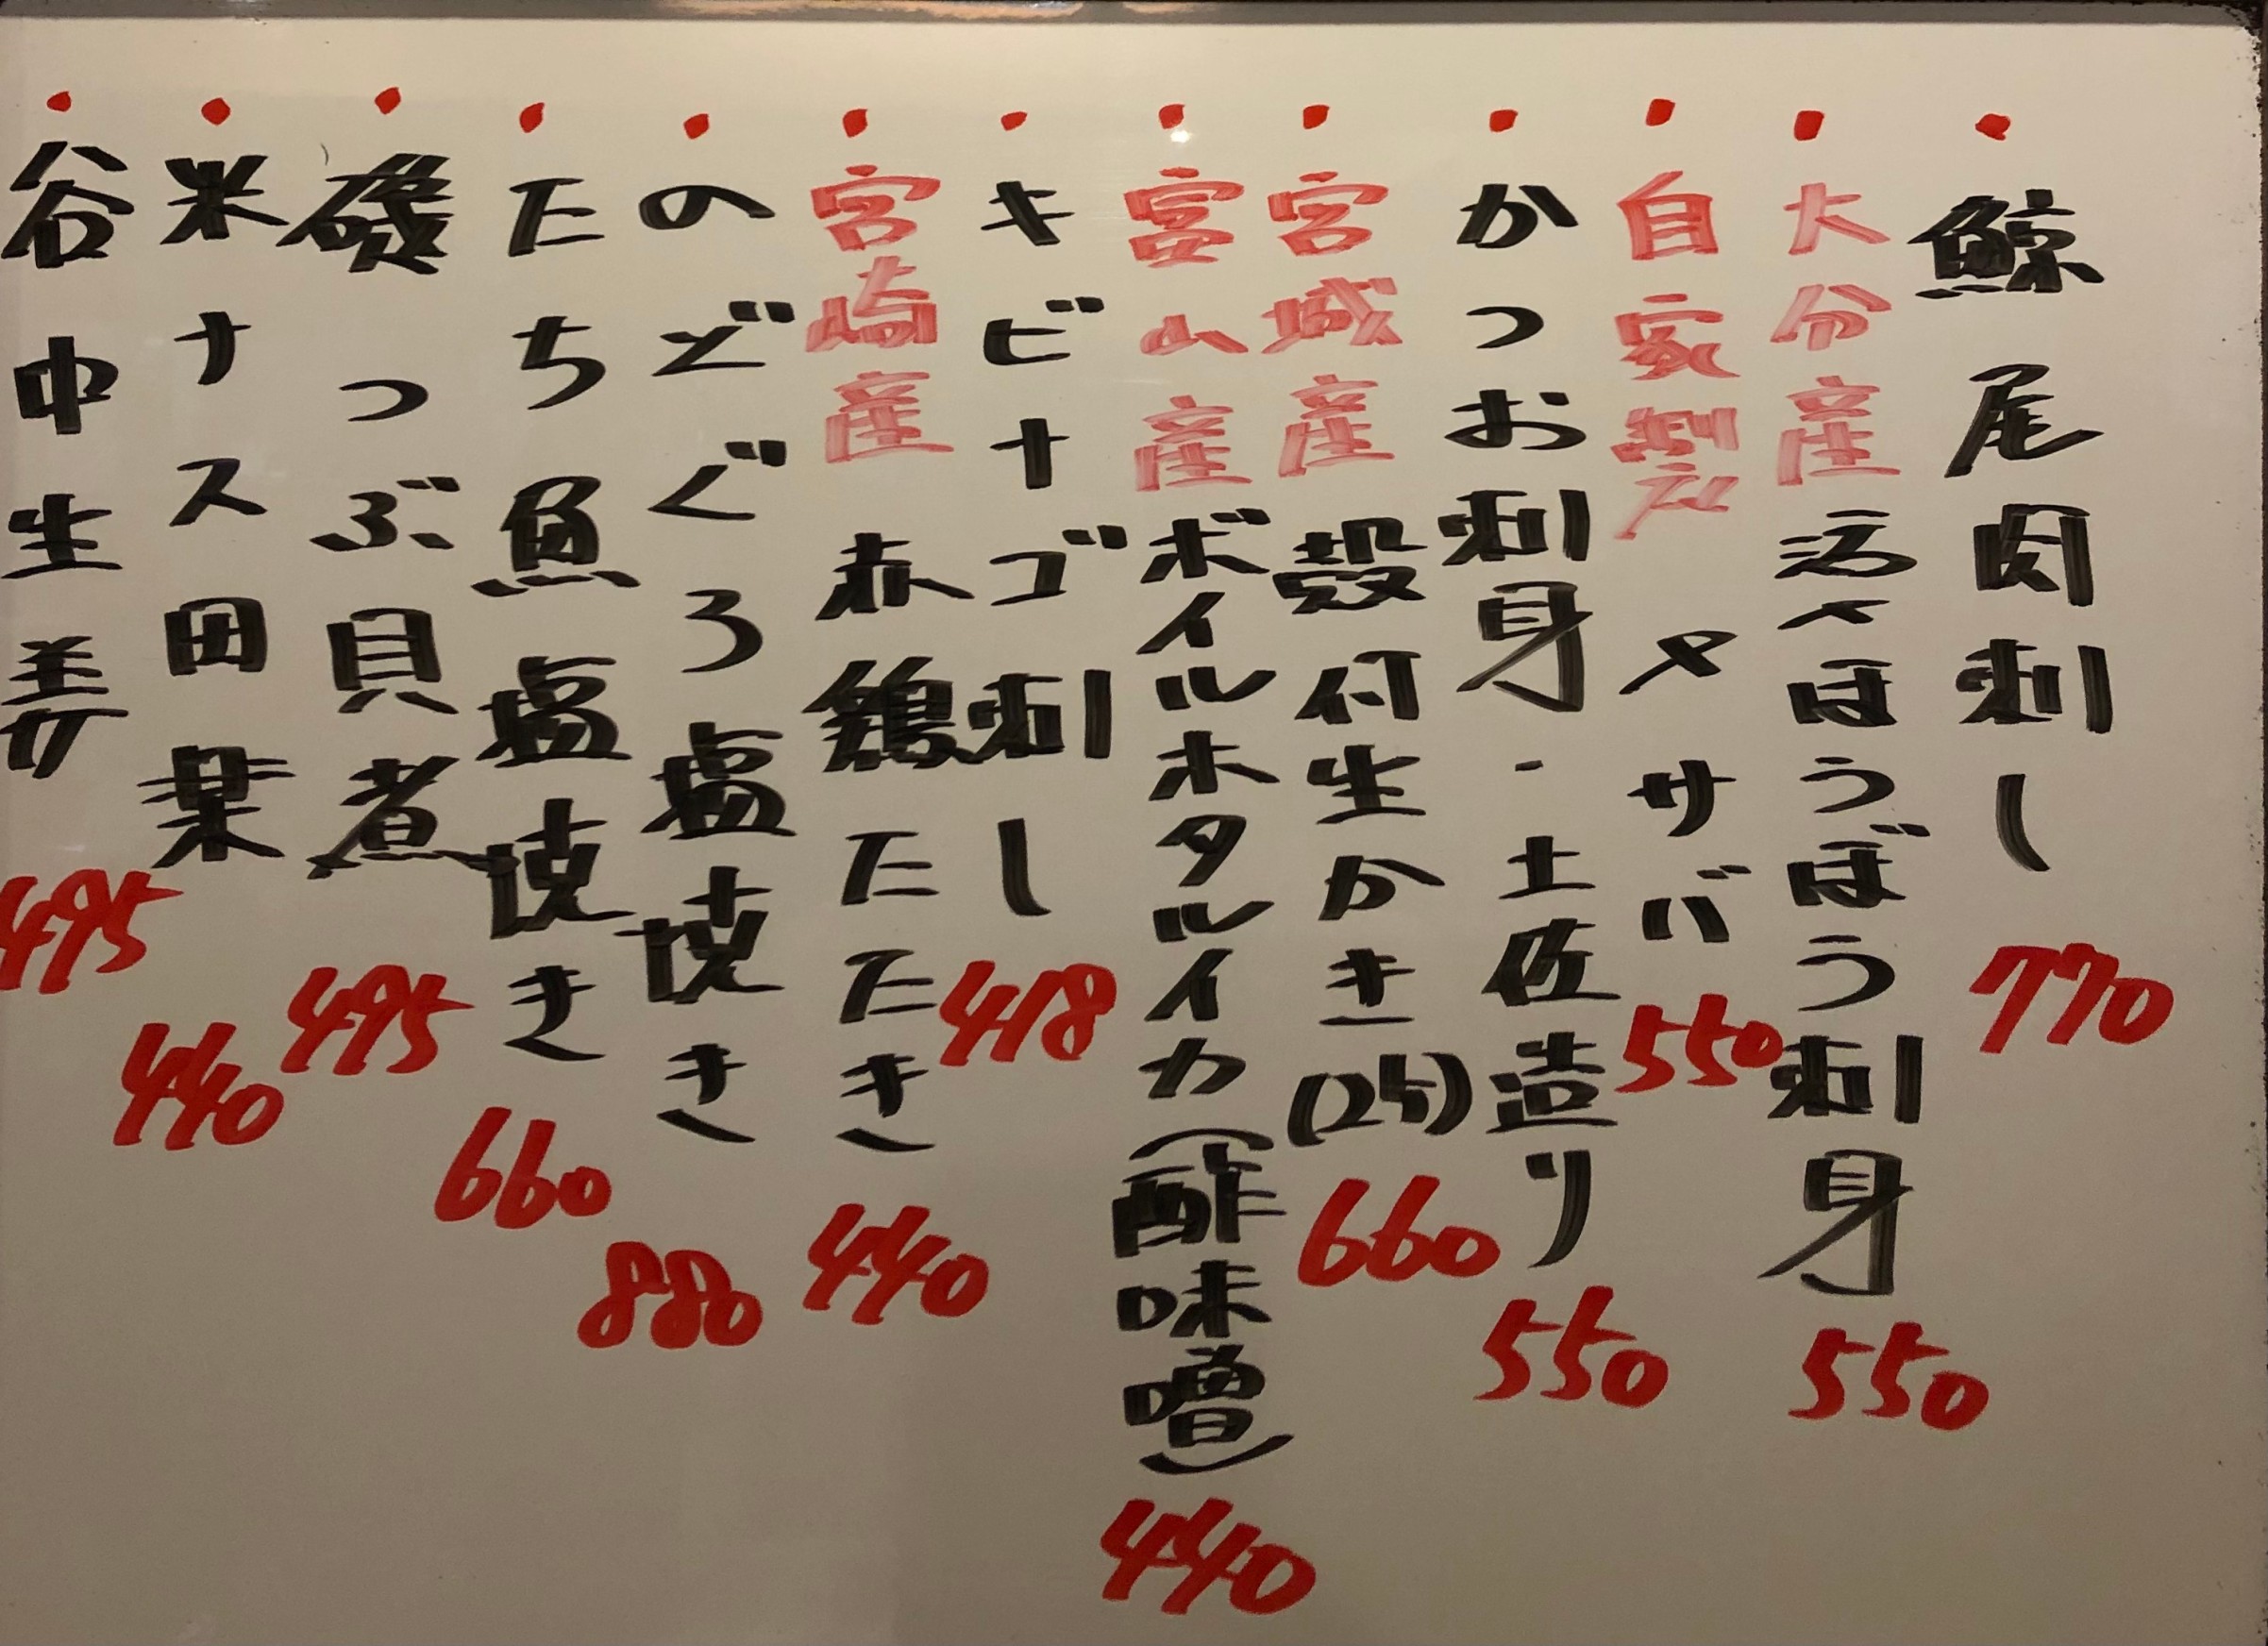 鯨尾肉刺し 770
大分産 活〆ほうぼう刺身 550
自家製 〆サバ 550
かつお刺身・土佐造り 550
宮城産 殻付生かき(2ケ) 660
富山産 ボイルホタルイカ(酢味噌) 440
キビナゴ刺し 418
宮崎産 赤鶏たたき 440
のどぐろ塩焼き 880
たちた魚塩焼き 660
磯つぶ貝煮 495
米ナス田楽 440
谷中生姜 495